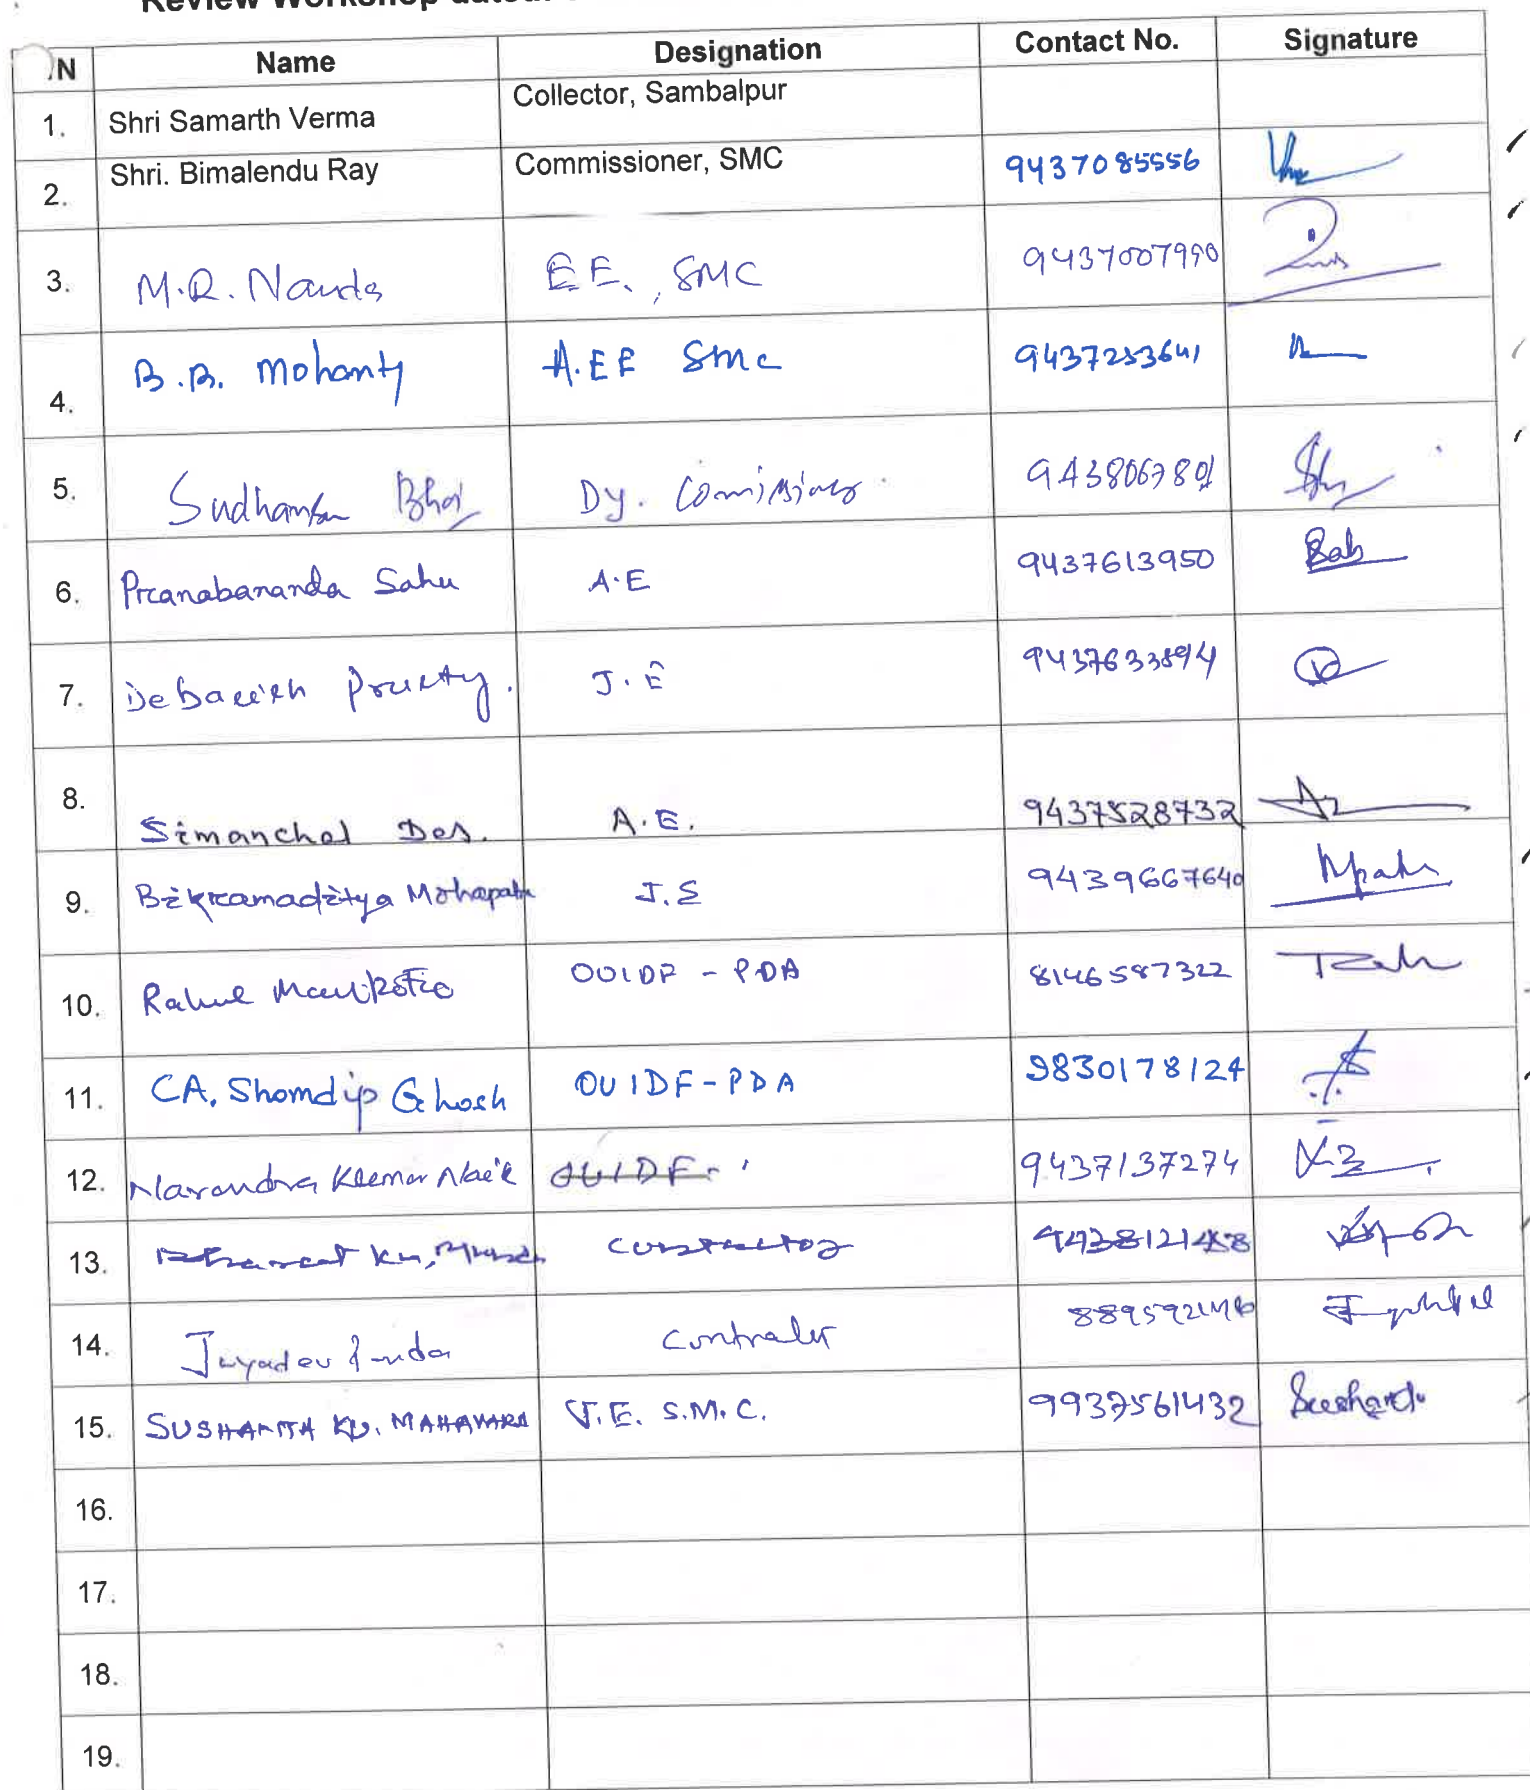 Review Workshop dated:
.N Name Designation Contact No. Signature
1. Shri Samarth Verma Collector, Sambalpur
2. Shri. Bimalendu Ray Commissioner, SMC 9437085556
3. M.R. Nanda EE., SMC 9437007990
4. B.B. Mohanty A.EE SMC 9437253641
5. Sudhansu Bhoi Dy. Comissioner
6. Prcanabananda Sahu A.E 9437613950
7. Debasish Prusty. J.E 9437633894
8. Simanchal Das. A.E. 9437528732
9. Bikramaditya Mohapatra J.E 9439667640
10. Rahul OUIDF - PDA 8146587322
11. CA. Shomdip Ghosh OUIDF-PDA 9830178124
12. Narendra Kumar Naik OUIDF. 9437137274
13. Ku.
14. Jayadev 
15. SUSHANTA KU. J.E. S.M.C. 9937561432
16.
17.
18.
19.